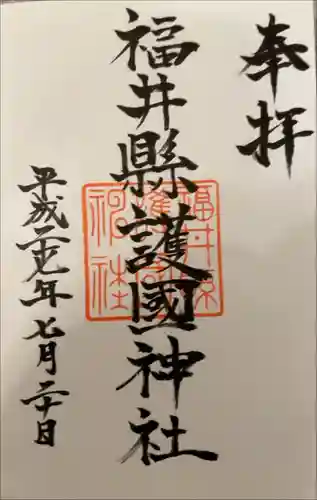 奉拝
福井縣護國神社
福井縣
護國
神社
平成二十九年七月二十日